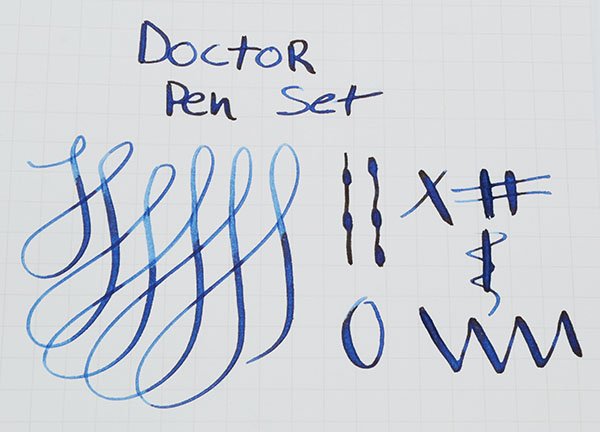 DoctoR
Pen Set
X #